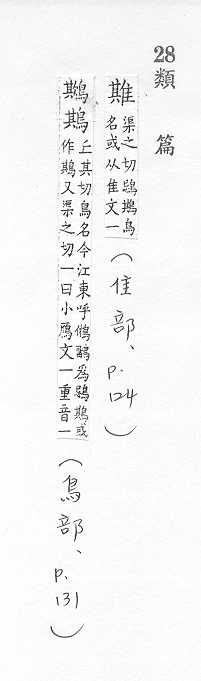 28 類篇
渠之切鵋鶀鳥
名或从隹文一
(隹部、p.124)
鶀
丘其切鳥名今江東呼鵂鶹為鵋鶀或
作鶀又渠之切一曰小鴈文一重音一
(鳥部、p.131)